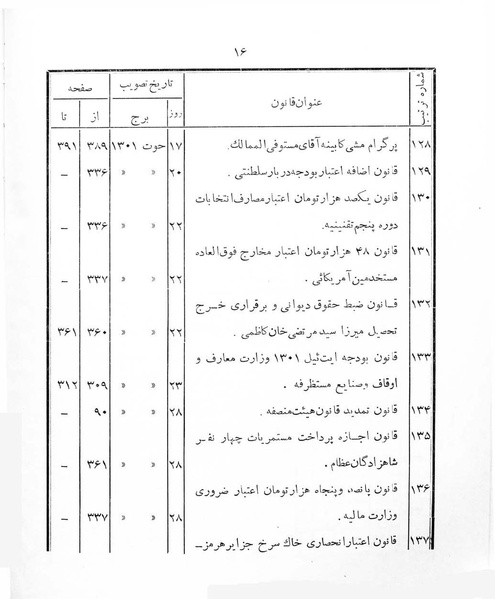 ۱۶
شماره ترتیب | عنوان قانون | تاریخ تصویب | صفحه
روز | برج | از | تا
۱۲۸ | پرگرام مشی کابینه آقای مستوفی الممالک. | ۱۷ | حوت ۱۳۰۱ | ۳۸۹ | ۳۹۱
۱۲۹ | قانون اضافه اعتبار بودجه دربار سلطنتی . | ۲۰ | » » | ۳۳۶ | –
۱۳۰ | قانون یکصد هزار تومان اعتبار مصارف انتخابات
دوره پنجم تقنینیه. | ۲۲ | » » | ۳۳۶ | –
۱۳۱ | قانون ۴۸ هزار تومان اعتبار مخارج فوق العاده
مستخدمین آمریکائی . | ۲۲ | » » | ۳۳۷ | –
۱۳۲ | قانون ضبط حقوق دیوانی و برقراری خرج
تحصیل میرزا سید مرتضی خان کاظمی . | ۲۲ | » » | ۳۶۰ | ۳۶۱
۱۳۳ | قانون بودجه ایت ئیل ۱۳۰۱ وزارت معارف و
اوقاف و صنایع مستظرفه . | ۲۳ | » » | ۳۰۹ | ۳۱۲
۱۳۴ | قانون تمدید قانون هیئت منصفه . | ۲۸ | » » | ۹۰ | –
۱۳۵ | قانون اجازه پرداخت مستمریات چهار نفر
شاهزادگان عظام . | ۲۸ | » » | ۳۶۱ | –
۱۳۶ | قانون پانصد و پنجاه هزار تومان اعتبار ضروری
وزارت مالیه . | ۲۸ | » » | ۳۳۷ | –
۱۳۷ | قانون اعتبار انحصاری خاك سرخ جزایر هرمز–